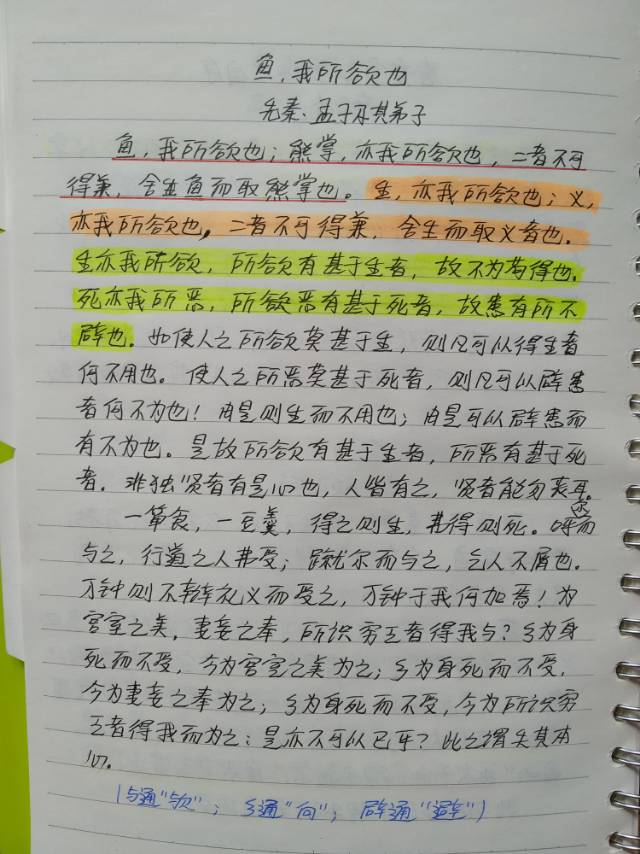 鱼,我所欲也
先秦·孟子及其弟子
鱼,我所欲也;熊掌,亦我所欲也,二者不可
得兼,舍生鱼而取熊掌也。生,亦我所欲也;义,
亦我所欲也,二者不可得兼,舍生而取义者也。
生亦我所欲,所欲有甚于生者,故不为苟得也。
死亦我所恶,所欲恶有甚于死者,故患有所不
辟也。如使人之所欲莫甚于生,则凡可以得生者
何不用也。使人之所恶莫甚于死者,则凡可以辟患
者何不为也!由是则生而不用也;由是可以辟患而
有不为也。是故所欲有甚于生者,所恶有甚于死
者。非独贤者有是心也,人皆有之,贤者能勿丧耳。
一箪食,一豆羹,得之则生,弗得则死。呼尔而
与之,行道之人弗受;蹴尔而与之,乞人不屑也。
万钟则不辩礼义而受之,万钟于我何加焉!为
宫室之美,妻妾之奉,所识穷乏者得我与?乡为身
死而不受,今为宫室之美为之;乡为身死而不受,
今为妻妾之奉为之;乡为身死而不受,今为所识穷
乏者得我而为之:是亦不可以已乎?此之谓失其本
心。
(与通"欤";乡通"向";辟通"避")